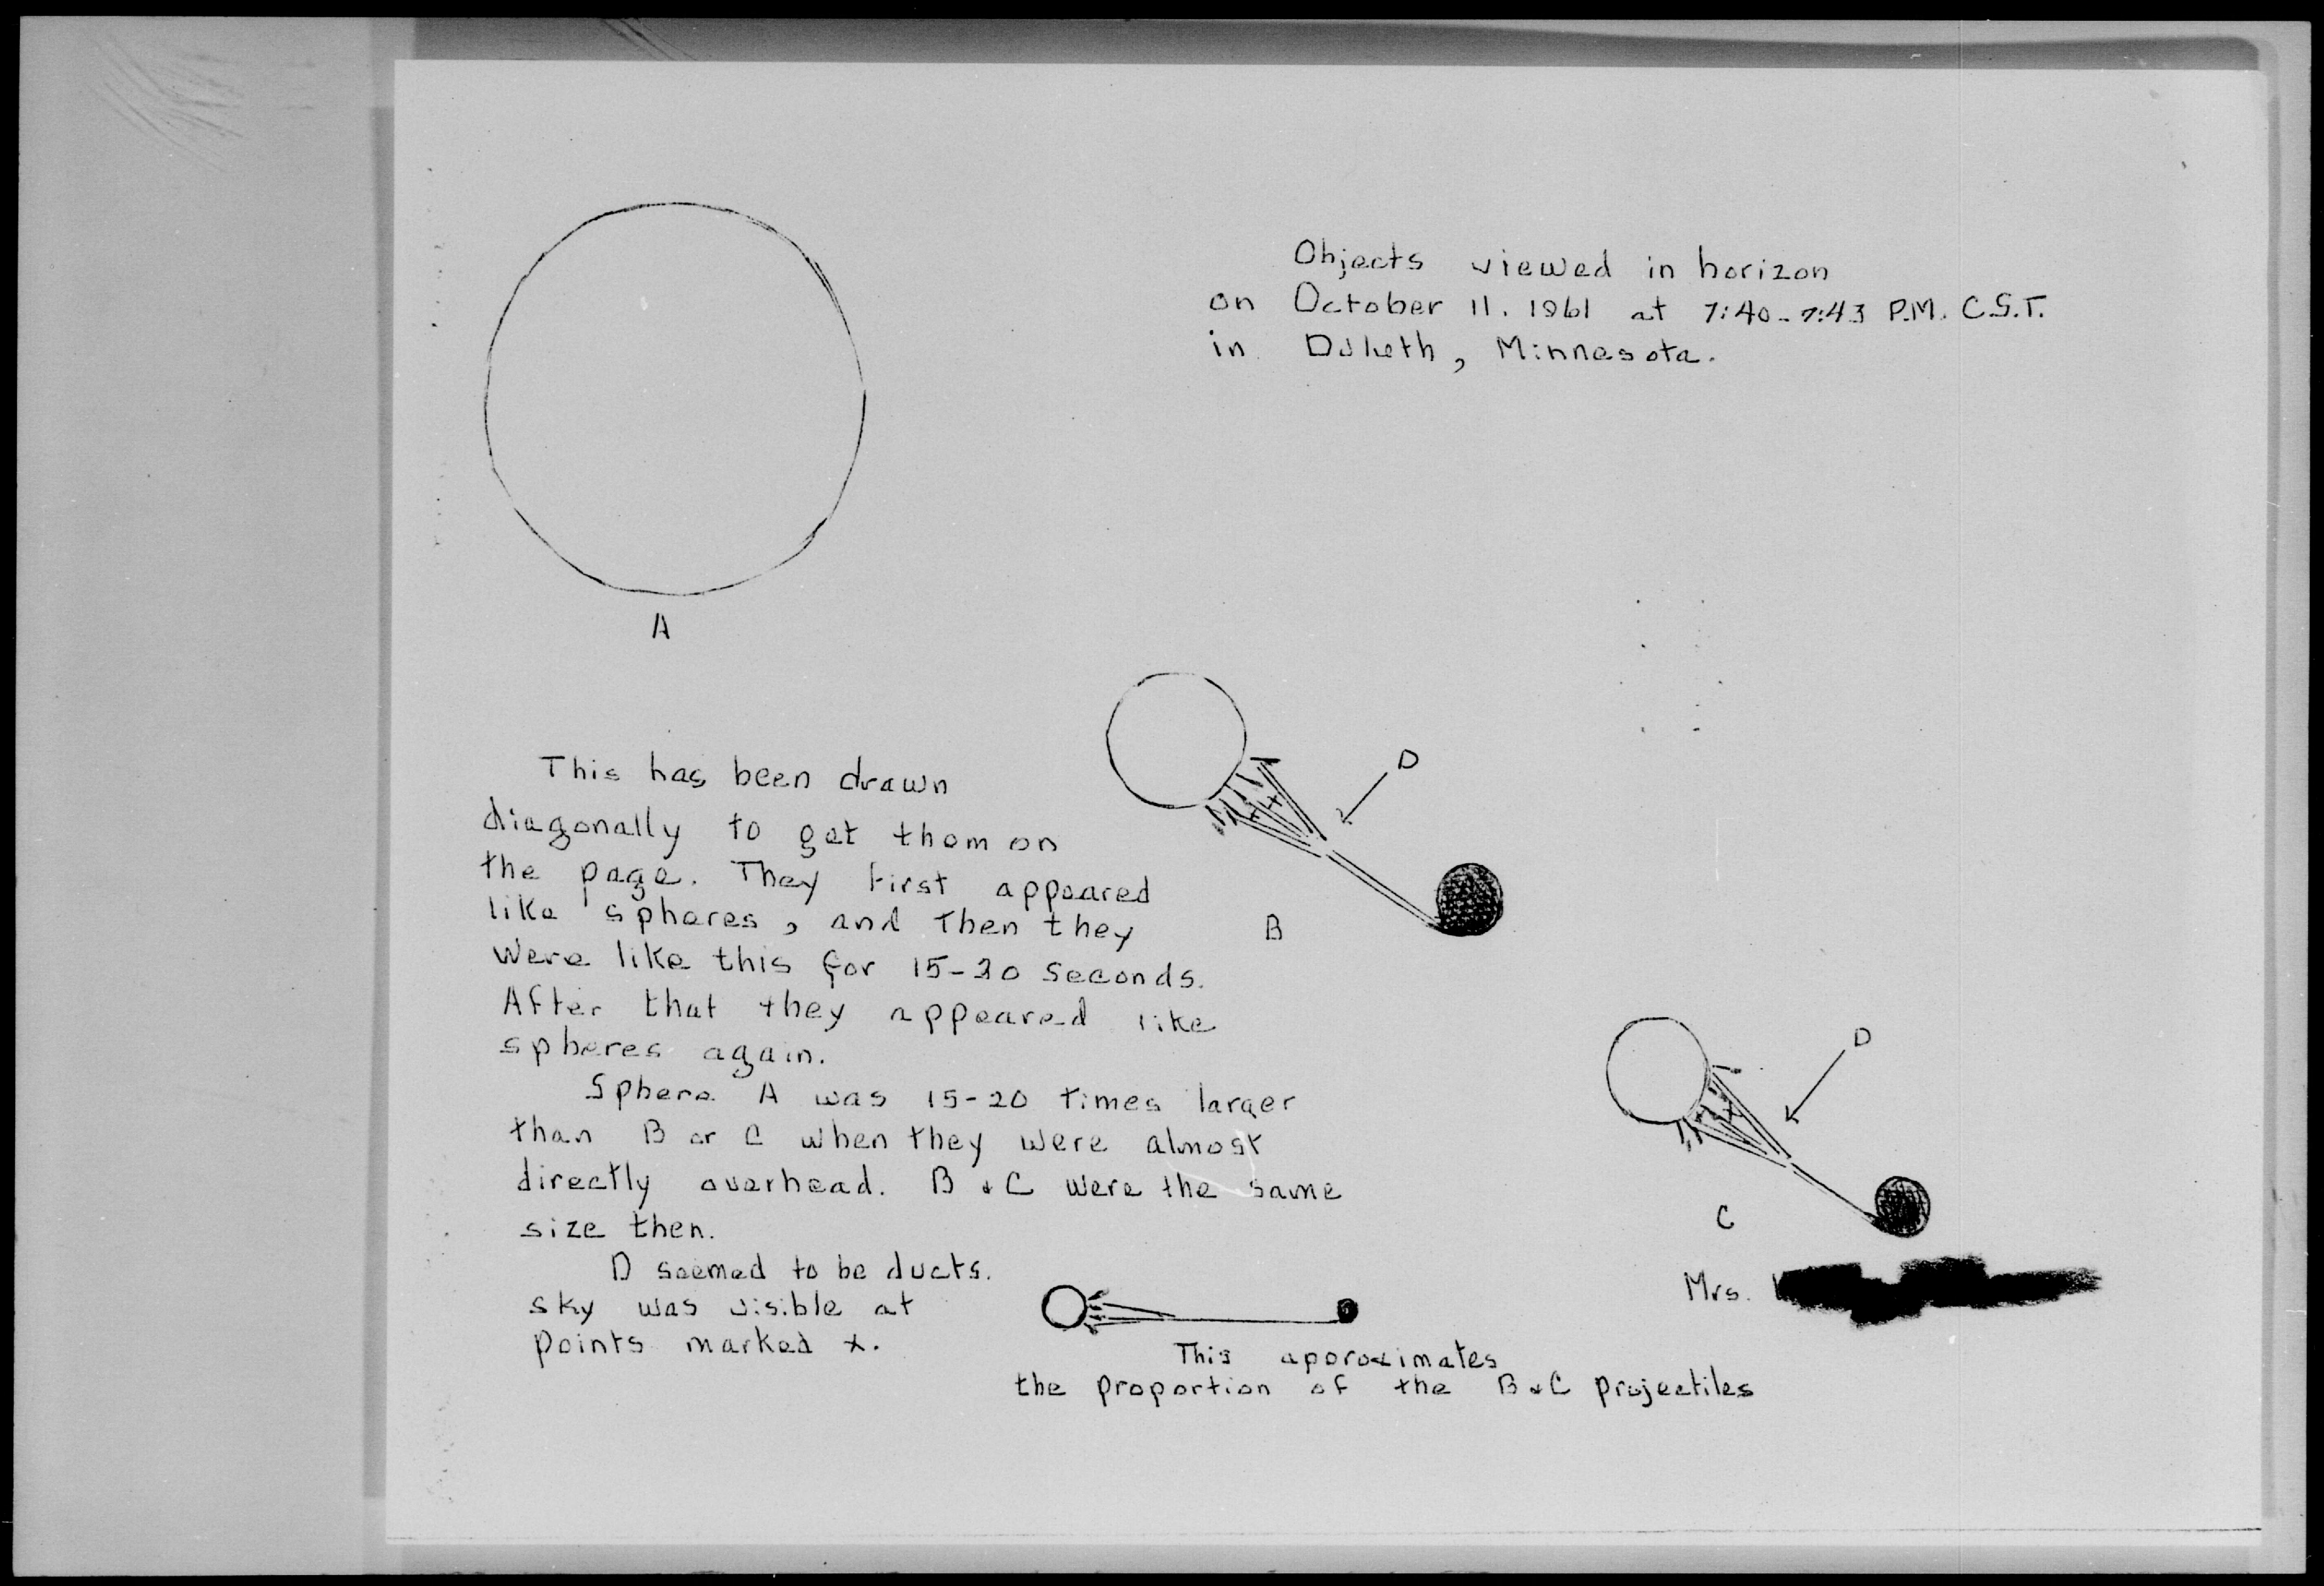 Objects viewed in horizon
on October 11, 1961 at 7:40-7:43 P.M. C.S.T.
in Duluth, Minnesota.
A
D
This has been drawn
diagonally to get them on
the page. They first appeared
like spheres, and then they
were like this for 15-20 seconds.
After that they appeared like
spheres again.
B
Sphere A was 15-20 times larger
than B or C when they were almost
directly overhead. B & C were the same
size then.
D seemed to be ducts.
sky was visible at
points marked x.
D
C
Mrs.
This approximates
the proportion of the B & C projectiles